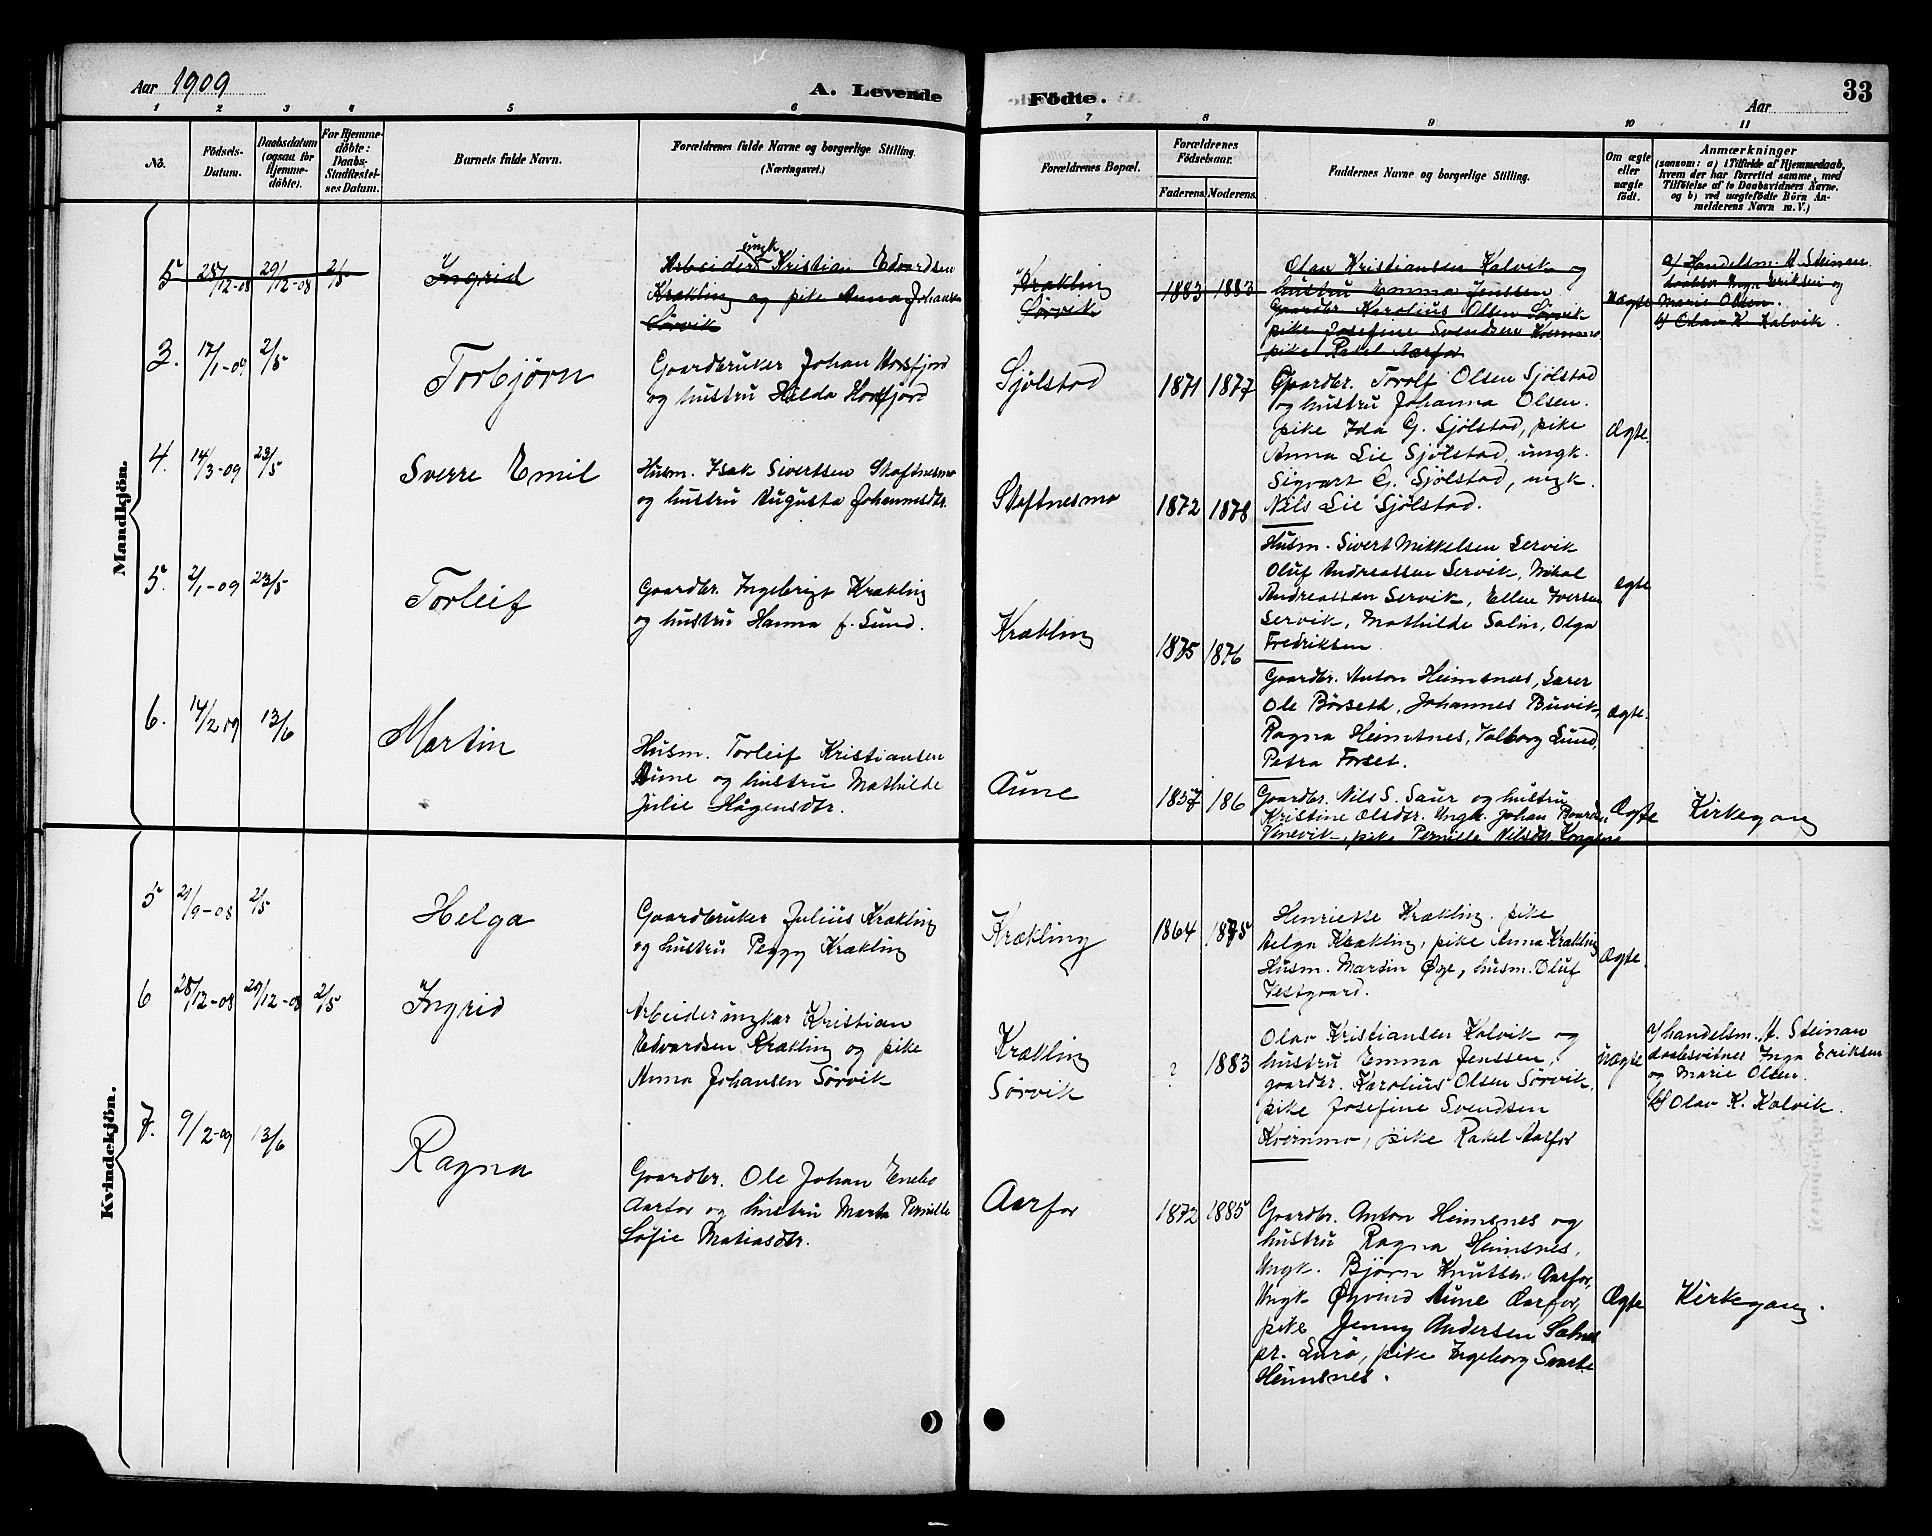 Aar 1909
A. Levende Födte.
33
Aar
1 2 3 4 5 6 7 8 9 10 11
No.
Födsels-Datum.
Daabsdatum (ogsaa for Hjemmedöbte).
For Hjemmedöbte: Daabs-Stadfæstelses Datum.
Barnets fulde Navn.
Forældrenes fulde Navne og borgerlige Stilling.
(Næringsvei.)
Forældrenes Bopæl.
Forældrenes Födselsaar.
Faderens. Moderens.
Faddernes Navne og borgerlige Stilling.
Om ægte eller uægte födt.
Anmærkninger
(saasom: a) i Tilfælde af Hjemmedaab, hvem der har forrettet samme, med Tilföielse af to Daabsvidners Navne. og b) ved uægtefödte Börn Anmelderens Navn m.V.)
Mandkjön.
5 28/12-08 29/12-08 2/5
Ingrid
Arbeider ungk Kristian Edvardsen
Krækling og pike Anna Johansen
Sørvik
Krækling
Sørvik
1883 1883
Olav Kristiansen Kalvik og
hustru Emma Jenssen
Gaardbr. Karolius Olsen Sørvik
pike Josefine Svendsen Kvernmo
pike Rakel Aarfor
uægte
a) Handelsm. M. Steinan
Inga Eriksen og
Marie Olsen.
b) Olav K. Kalvik.
3. 17/1-09 2/5
Torbjørn
Gaardbruker Johan Horsfjord
og hustru Hilda Horsfjord
Sjølstad
1871 1877
Gaardbr. Torolf Olsen Sjølstad
og hustru Johanna Olsen.
pike Ida G. Sjølstad, pike
Anna Lie Sjølstad, ungk.
Sigvart G. Sjølstad, ungk.
Nils Lie Sjølstad.
Ægte.
4. 14/3-09 23/5
Sverre Emil
Husm. Isak Sivertsen Stoftnesmo
og hustru Augusta Johannesdtr.
Stoftnesmo
1872 1878
Husm. Sivert Mikkelsen Servik
Oluf Andreassen Servik, Mikal
Andreassen Servik, Ellen Iversen
Servik, Mathilde Solin, Olga
Fredriksen
ægte
5. 2/1-09 23/5
Torleif
Gaardbr. Ingebrigt Krækling
og hustru Hanna f. Lund.
Krækling
1875 1876
Gaardbr. Anton Heimsnes, Lærer
Ole Børseth, Johannes Buvik,
Ragna Heimsnes, Valborg Lund,
Petra Forset.
ægte.
6. 14/2 09 13/6
Martin
Husm. Torleif Kristiansen
Aune og hustru Mathilde
Julie Hågensdtr.
Aune
1857 186
Gaardbr. Nils S. Saur og hustru
Kristine Olsdtr. Ungk. Johan
pike Pernille Nilsdtr.
Ægte
Kirkegang
Kvindekjön.
5 21/9-08 2/5
Helga
Gaardbruker Julius Krækling
og hustru Peggy Krækling
Krækling
1864 1875
Henriette Krækling. pike
Helga Krækling, pike Anna Krækling
Husm. Martin Øye, husm. Oluf
Vestgaard.
Ægte.
6 28/12-08 29/12-08 2/5
Ingrid
Arbeider ungkar Kristian
Edvardsen Krækling og pike
Anna Johansen Sørvik
Krækling
Sørvik
? 1883
Olav Kristiansen Kalvik og
hustru Emma Jenssen,
gaardbr. Karolius Olsen Sørvik,
pike Josefine Svendsen
Kvernmo, pike Rakel Aarfor
Uægte
a) handelsm. M. Steinan
daabsvidner Inga Eriksen
og Marie Olsen.
b) Olav K. Kalvik.
7. 9/2-09 13/6
Ragna
Gaardbr. Ole Johan Enebo
Aarfor og hustru Marta Pernille
Sofie Matiasdtr.
Aarfor
1872 1885
Gaardbr. Anton Heimsnes og
hustru Ragna Heimsnes,
Ungk. Bjørn Knutsen Aarfor,
Ungk Øyvind Aune Aarfor,
pike Jenny Andersen Solnes
pr. Lurø, pike Ingeborg
Heimsnes.
Ægte
Kirkegang.